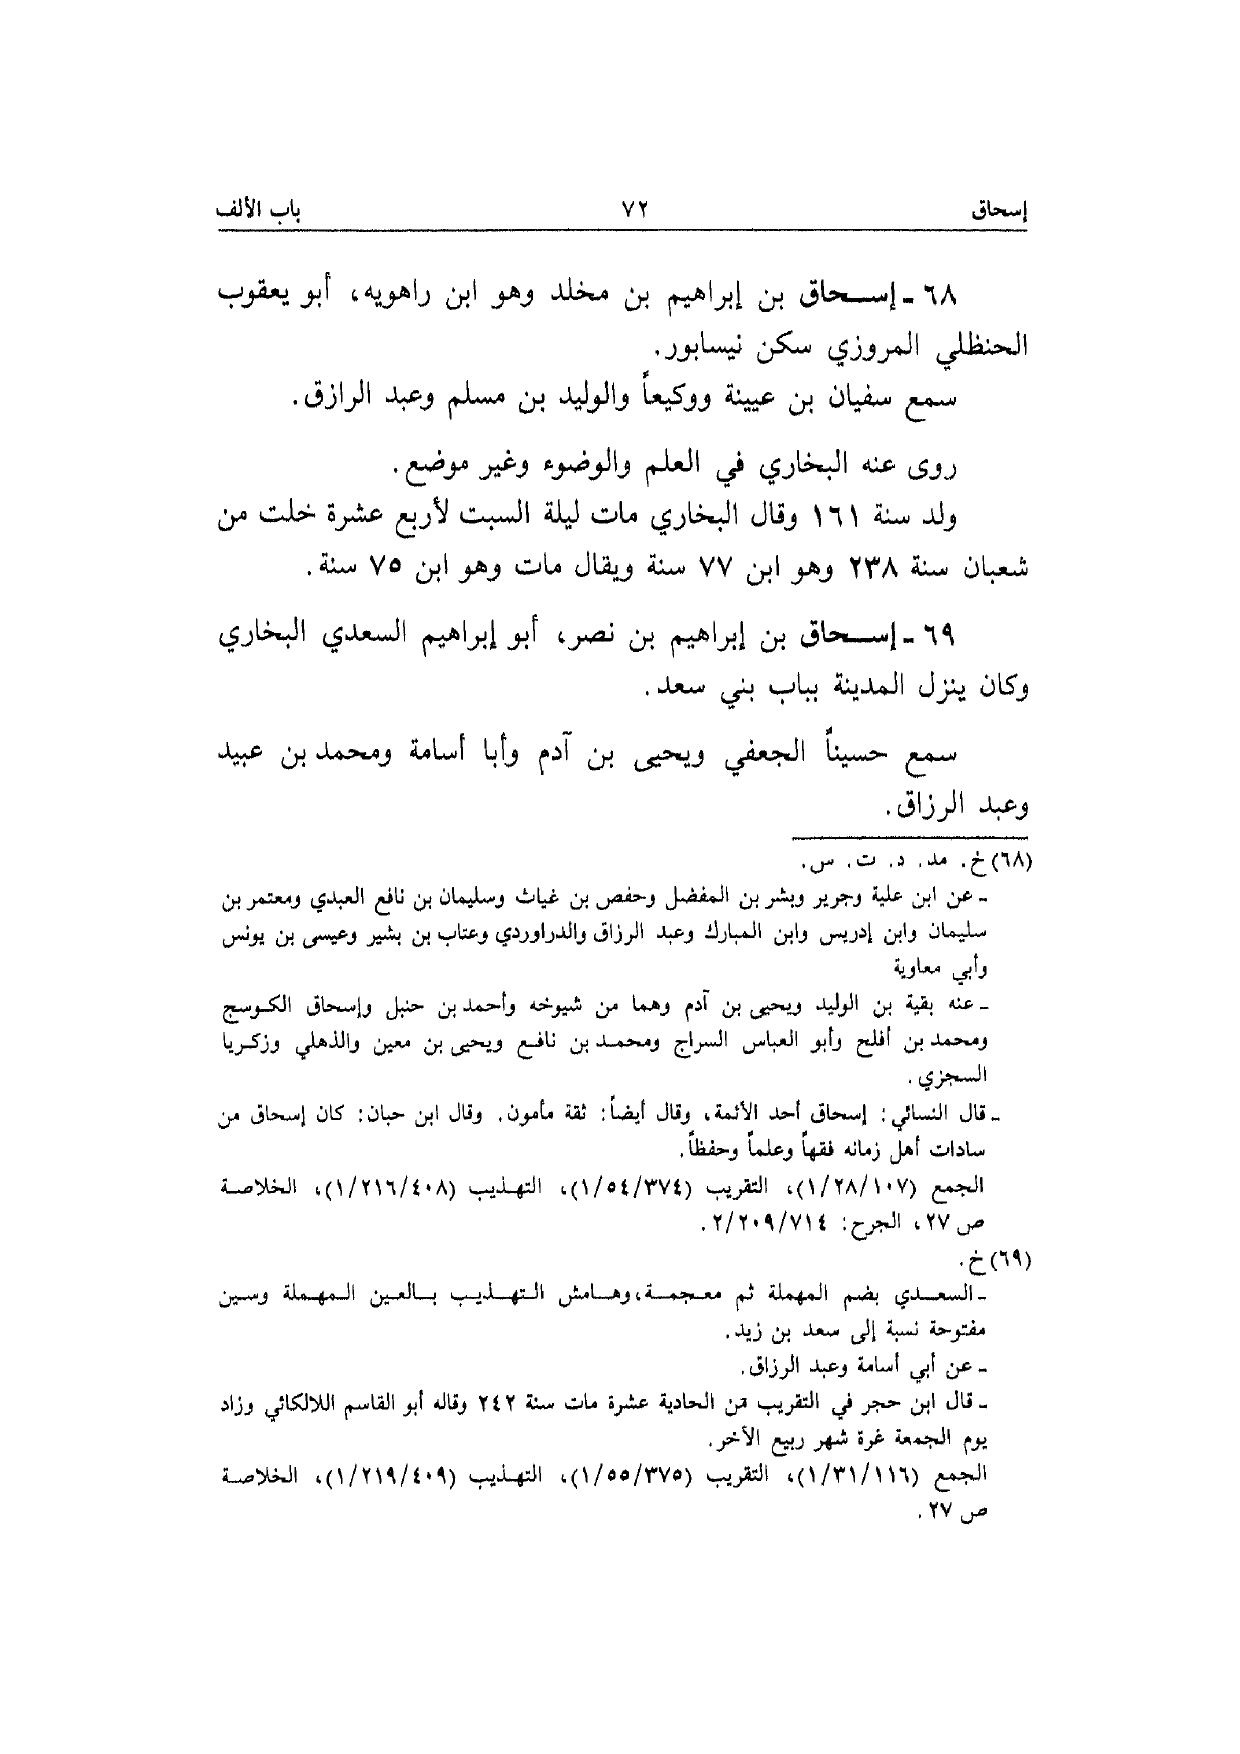 إسحاق ٧٢ باب الألف
٦٨ ـ إســحاق بن إبراهيم بن مخلد وهو ابن راهويه، أبو يعقوب
الحنظلي المروزي سكن نيسابور.
سمع سفيان بن عيينة ووكيعاً والوليد بن مسلم وعبد الرازق.
روى عنه البخاري في العلم والوضوء وغير موضع.
ولد سنة ١٦١ وقال البخاري مات ليلة السبت لأربع عشرة خلت من
شعبان سنة ٢٣٨ وهو ابن ٧٧ سنة ويقال مات وهو ابن ٧٥ سنة.
٦٩ ـ إســحاق بن إبراهيم بن نصر، أبو إبراهيم السعدي البخاري
وكان ينزل المدينة بباب بني سعد.
سمع حسيناً الجعفي ويحيى بن آدم وأبا أسامة ومحمد بن عبيد
وعبد الرزاق.
(٦٨) خ. مد. د. ت. س.
ـ عن ابن علية وجرير وبشر بن المفضل وحفص بن غياث وسليمان بن نافع العبدي ومعتمر بن
سليمان وابن إدريس وابن المبارك وعبد الرزاق والدراوردي وعتاب بن بشير وعيسى بن يونس
وأبي معاوية
ـ عنه بقية بن الوليد ويحيى بن آدم وهما من شيوخه وأحمد بن حنبل وإسحاق الكوسج
ومحمد بن أفلح وأبو العباس السراج ومحمد بن نافع ويحيى بن معين والذهلي وزكريا
السجزي.
ـ قال النسائي: إسحاق أحد الأئمة، وقال أيضاً: ثقة مأمون. وقال ابن حبان: كان إسحاق من
سادات أهل زمانه فقهاً وعلماً وحفظاً.
الجمع (١/٢٨/١٠٧)، التقريب (١/٥٤/٣٧٤)، التهذيب (١/٢١٦/٤٠٨)، الخلاصة
ص ٢٧، الجرح: ٢/٢٠٩/٧١٤.
(٦٩) خ.
ـ السعدي بضم المهملة ثم معجمة، وهامش التهذيب بالعين المهملة وسين
مفتوحة نسبة إلى سعد بن زيد.
ـ عن أبي أسامة وعبد الرزاق.
ـ قال ابن حجر في التقريب من الحادية عشرة مات سنة ٢٤٢ وقاله أبو القاسم اللالكائي وزاد
يوم الجمعة غرة شهر ربيع الآخر.
الجمع (١/٣١/١١٦)، التقريب (١/٥٥/٣٧٥)، التهذيب (١/٢١٩/٤٠٩)، الخلاصة
ص ٢٧.